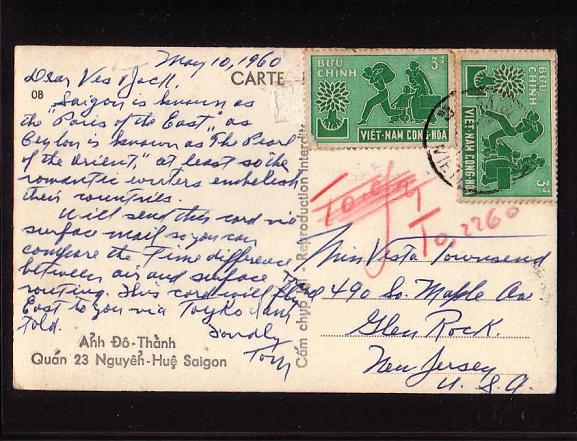 May 10, 1960
Dear Ves & Jack,
Saigon is known as
the "Paris of the East" as
Ceylon is known as "The Pearl
of the Orient," at least so the
romantic writers embellish
their countries.
Will send this card via
surface mail so you can
compare the time difference
between air and surface
routing. This card will
East to you via Toykyo I am
told.
Fondly
Tom
08
CARTE
Ảnh Đô-Thành
Quán 23 Nguyễn-Huệ Saigon
Cấm chụp - Reproduction Interdite
BƯU CHÍNH 3đ
VIỆT-NAM CỘNG-HÒA
BƯU CHÍNH 3đ
VIỆT-NAM CỘNG-HÒA
T0,2260
Miss Vesta Townsend
490 So. Maple Ave
Glen Rock.
New Jersey
U. S. A.